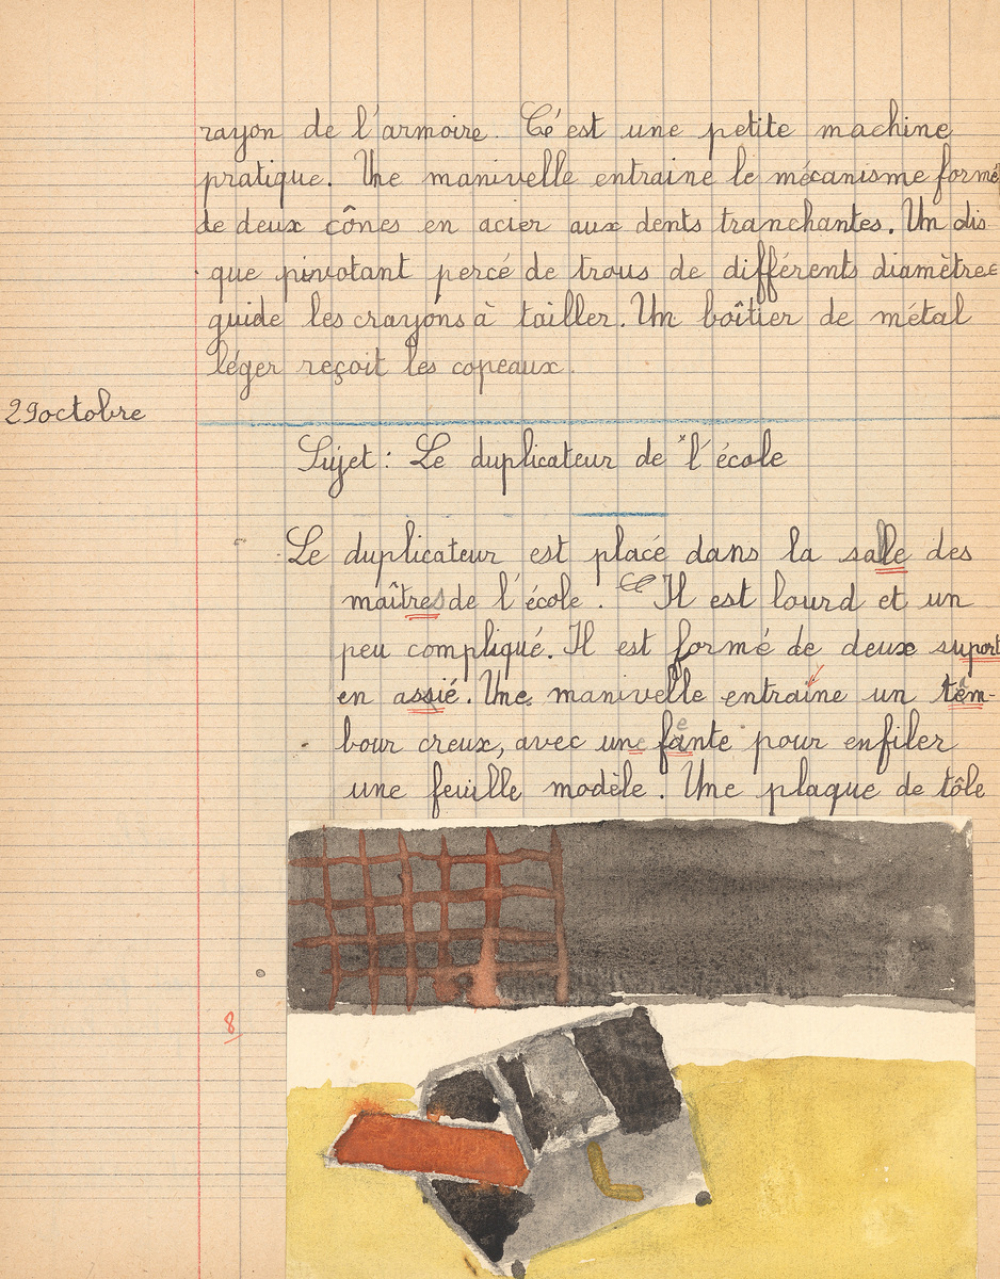 rayon de l'armoire. C'est une petite machine
pratique. Une manivelle entraine le mécanisme formé
de deux cônes en acier aux dents tranchantes. Un dis
que pivotant percé de trous de différents diamètres
guide les crayons à tailler. Un boîtier de métal
léger reçoit les copeaux.
29 octobre
Sujet: Le duplicateur de l'école
Le duplicateur est placé dans la salle des
maîtres de l'école. Il est lourd et un
peu compliqué. Il est formé de deux suport
en assié. Une manivelle entraîne un tam-
bour creux, avec une fente pour enfiler
une feuille modèle. Une plaque de tôle
8